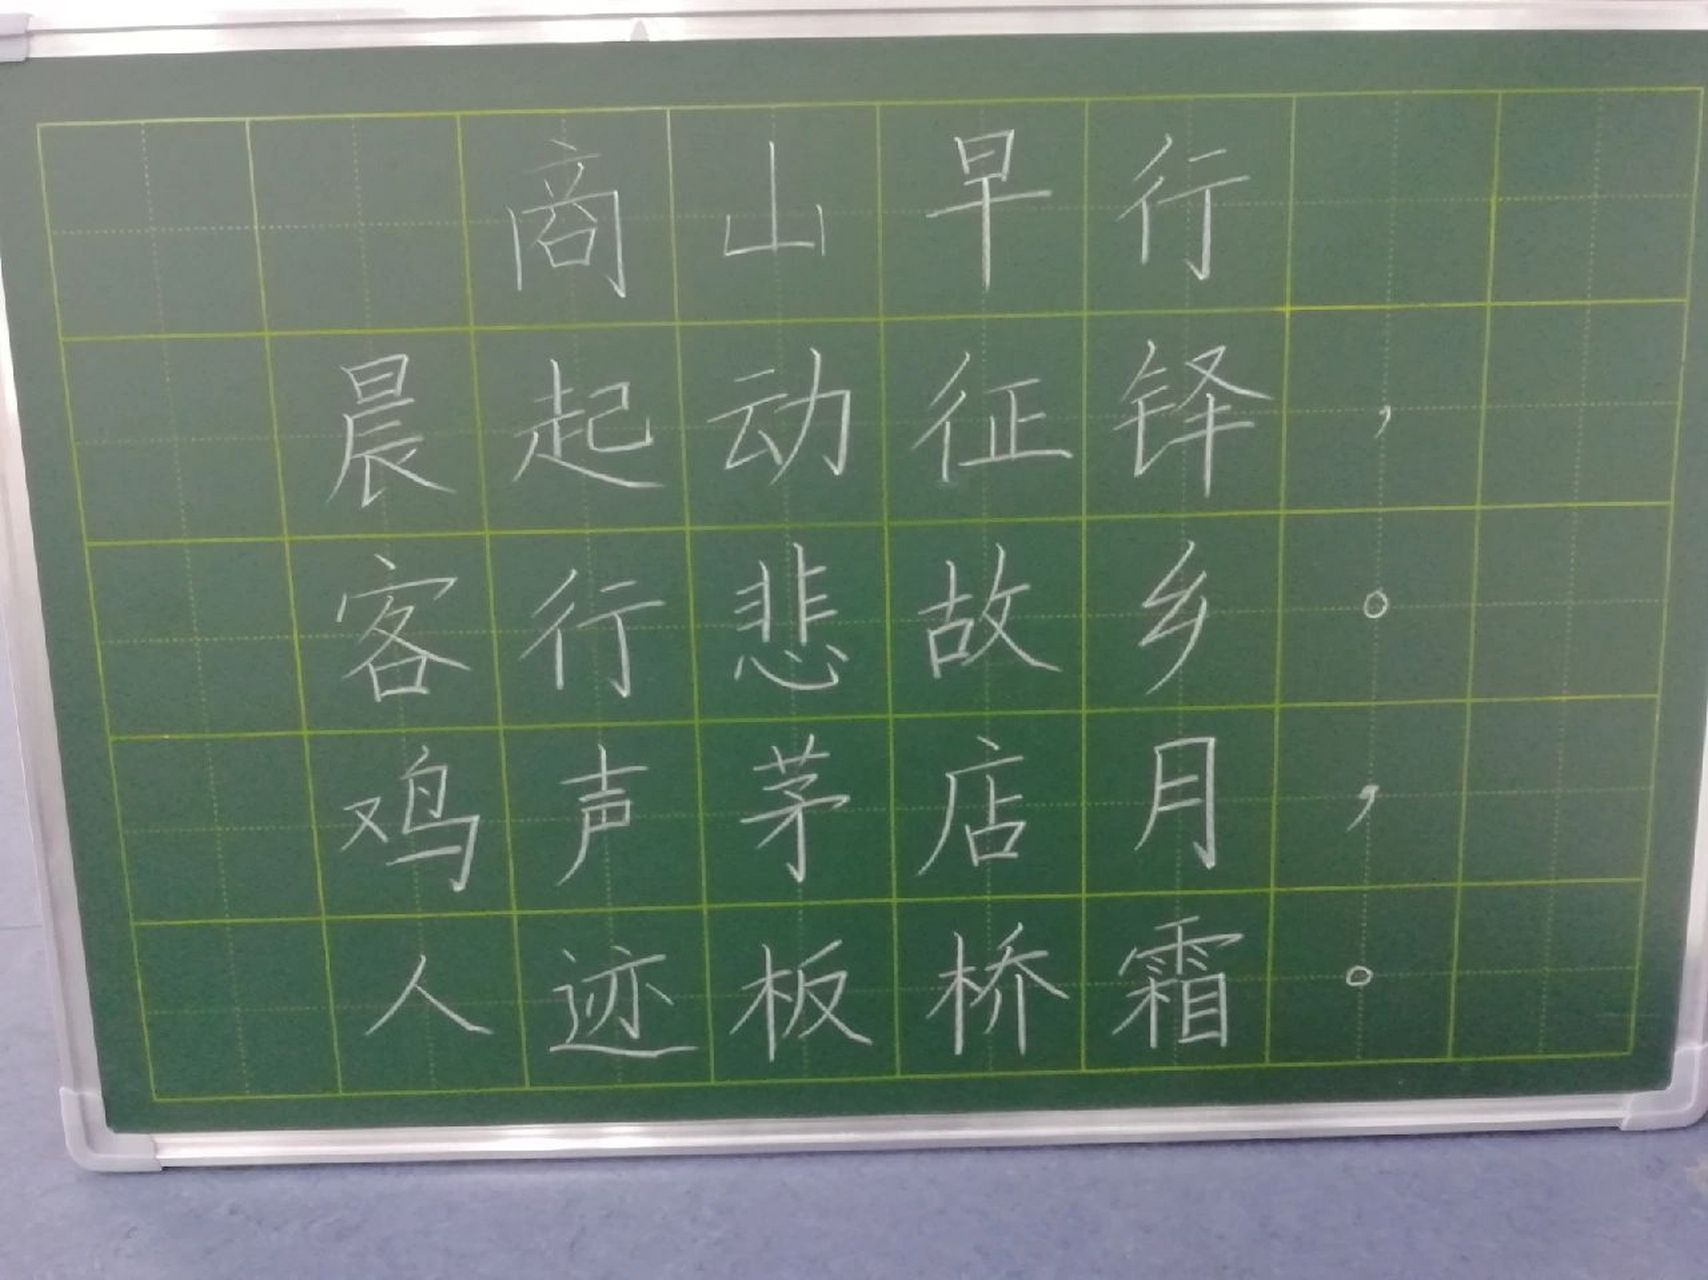 商山早行
晨起动征铎，
客行悲故乡。
鸡声茅店月，
人迹板桥霜。